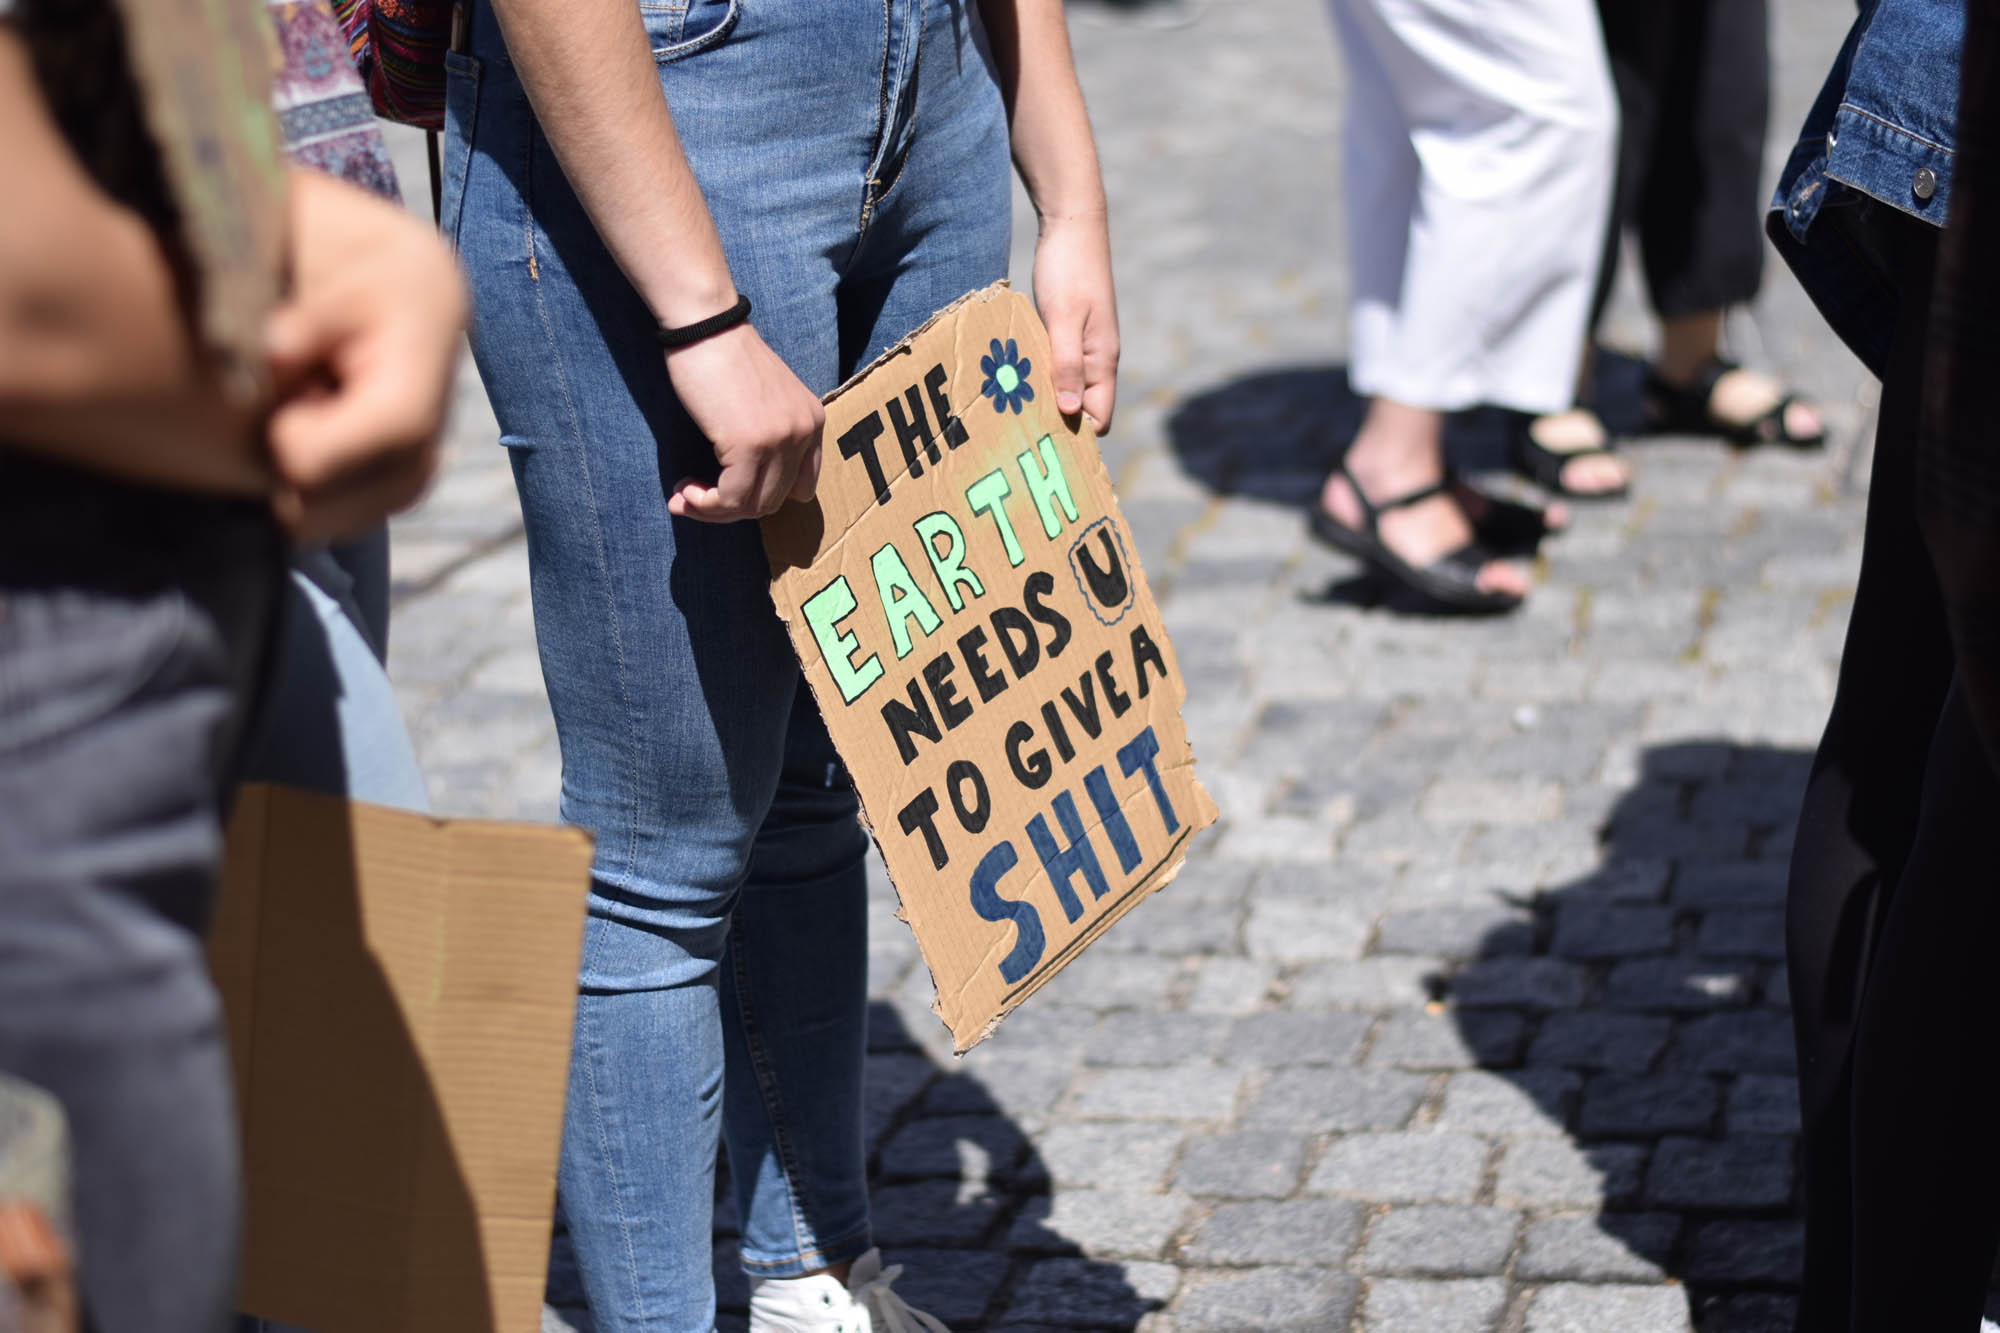 THE
EARTH
NEEDS U
TO GIVE A
SHIT